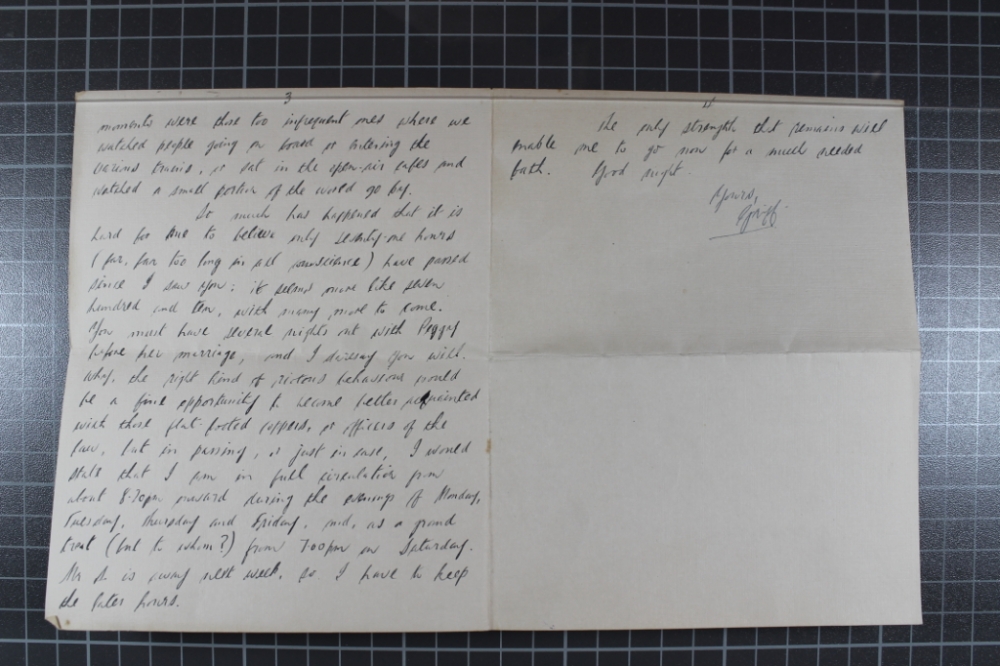 3
moments were those too infrequent ones where we
watched people going on board or entering the
various trains, or sat in the open-air cafes and
watched a small portion of the world go by.
So much has happened that it is
hard for me to believe only seventy-one hours
(far, far too long in all conscience) have passed
since I saw you; it seems more like seven
hundred and ten, with many more to come.
You must have several nights out with Peggy
before her marriage, and I daresay you will.
Why, the right kind of riotous behaviour would
be a fine opportunity to become better acquainted
with those flat-footed coppers, or officers of the
law, but in passing, or just in case, I would
state that I am in full circulation from
about 8.30pm onward during the evenings of Monday,
Tuesday, Thursday and Friday, and, as a grand
treat (but to whom?) from 7.00pm on Saturday.
Mr is away next week, so I have to keep
the later hours.
4
The only strength that remains will
enable me to go now for a much needed
bath. Good night.
Yours,
Griff.